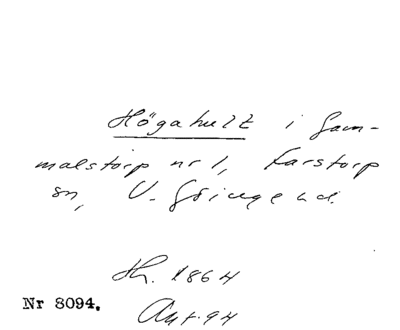 Högahult i Gam-
malstorp nr 1, Farstorp
sn, V. Göinge hd.
Hk. 1864
Nr 8094.
Ant. 94